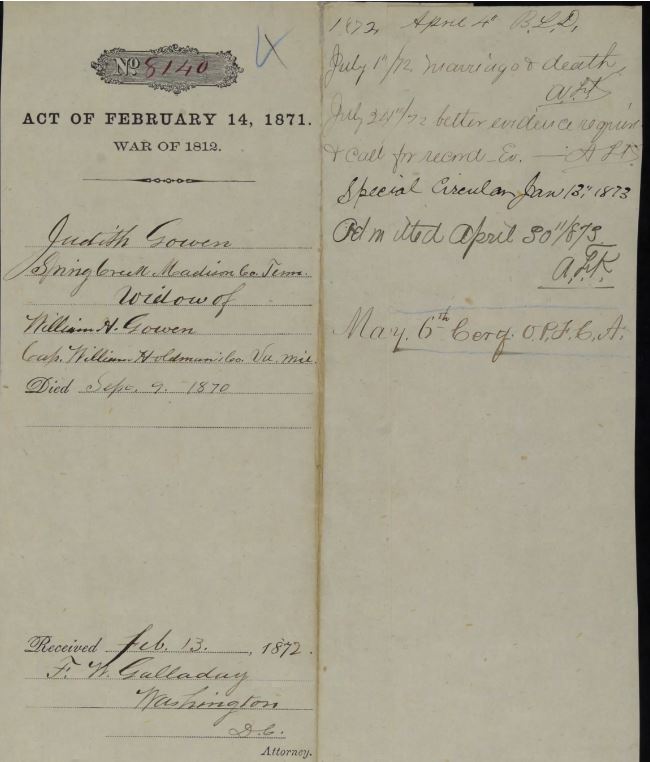 No 8140
ACT OF FEBRUARY 14, 1871.
WAR OF 1812.
Judith Gowen
Spring Creek Madison Co Tenn.
Widow of
William H. Gowen
Cap. William Holdman's Co. Va. mil.
Died Sept. 9. 1870
Received Feb. 13. , 1872.
F. W. Galladay
Washington
D.C.
Attorney.
1872 April 4" B.L.D.
July 1st/72 marriage & death
July 24"/72 better evidence requir
& call for record Ev.
Special Circular Jan 13" 1873
Admitted April 30"/873
A.F.K.
May. 6th Cerq. O.P.F.C.A.